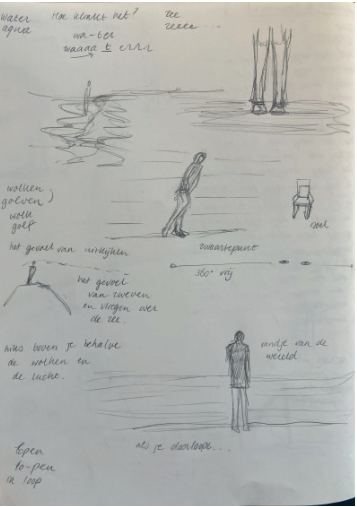 water
aqua
Hoe klinkt het?
wa-ter
waaaa t errr
zee
zeeee......
wolken
golven)
wolk
golf
het gevoel van uitkijken
zwaartepunt
stoel
360° vrij
het gevoel
van zweven
en vliegen over
de zee.
niks boven je behalve
de wolken en
de lucht.
randje van de
wereld
als je doorloopt...
lopen
lo-pen
in loop